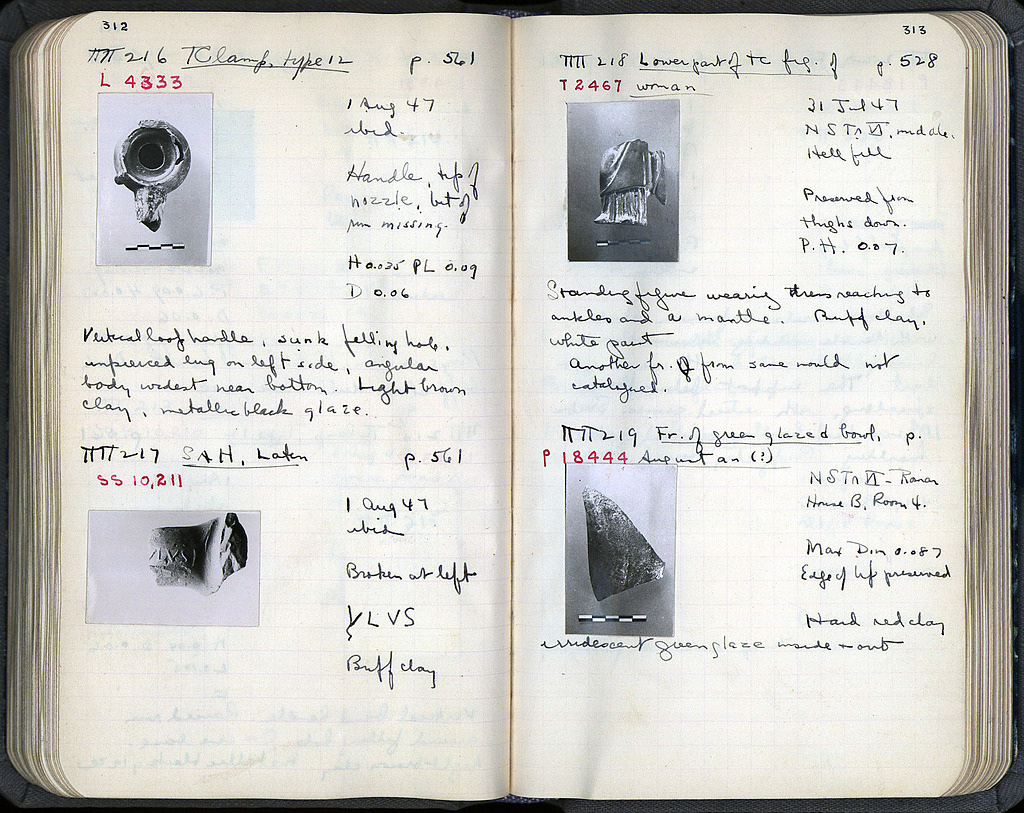 312
ΠΠ 216 TC lamp, type 12 p. 561
L 4333
1 Aug 47
ibid.
Handle, tip of
nozzle, bit of
rim missing.
H 0.035 PL 0.09
D 0.06
Vertical loop handle, sunk filling hole,
unpierced lug on left side, angular
body, widest near bottom. Light brown
clay, metallic black glaze.
ΠΠ 217 SAH, Latin p. 561
SS 10,211
1 Aug 47
ibid
Broken at left
LVS
Buff clay
313
ΠΠ 218 Lower part of tc fig. of p. 528
T 2467 woman
31 Jul 47
NSTr VI, middle.
Hell fill
Preserved from
thighs down.
P.H. 0.07.
Standing figure wearing dress reaching to
ankles and a mantle. Buff clay,
white paint
Another fr. from same mould not
catalogued.
ΠΠ 219 Fr. of green glazed bowl, p.
P 18444 Augustan (?)
NSTr VI - Roman
House B, Room 4.
Max Dim 0.087
Edge of lip preserved
Hard red clay
irridescent green glaze inside + out